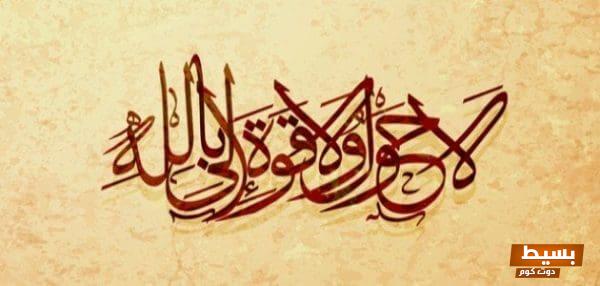 لا حول ولا قوة إلا بالله
بسيط
دوت كوم